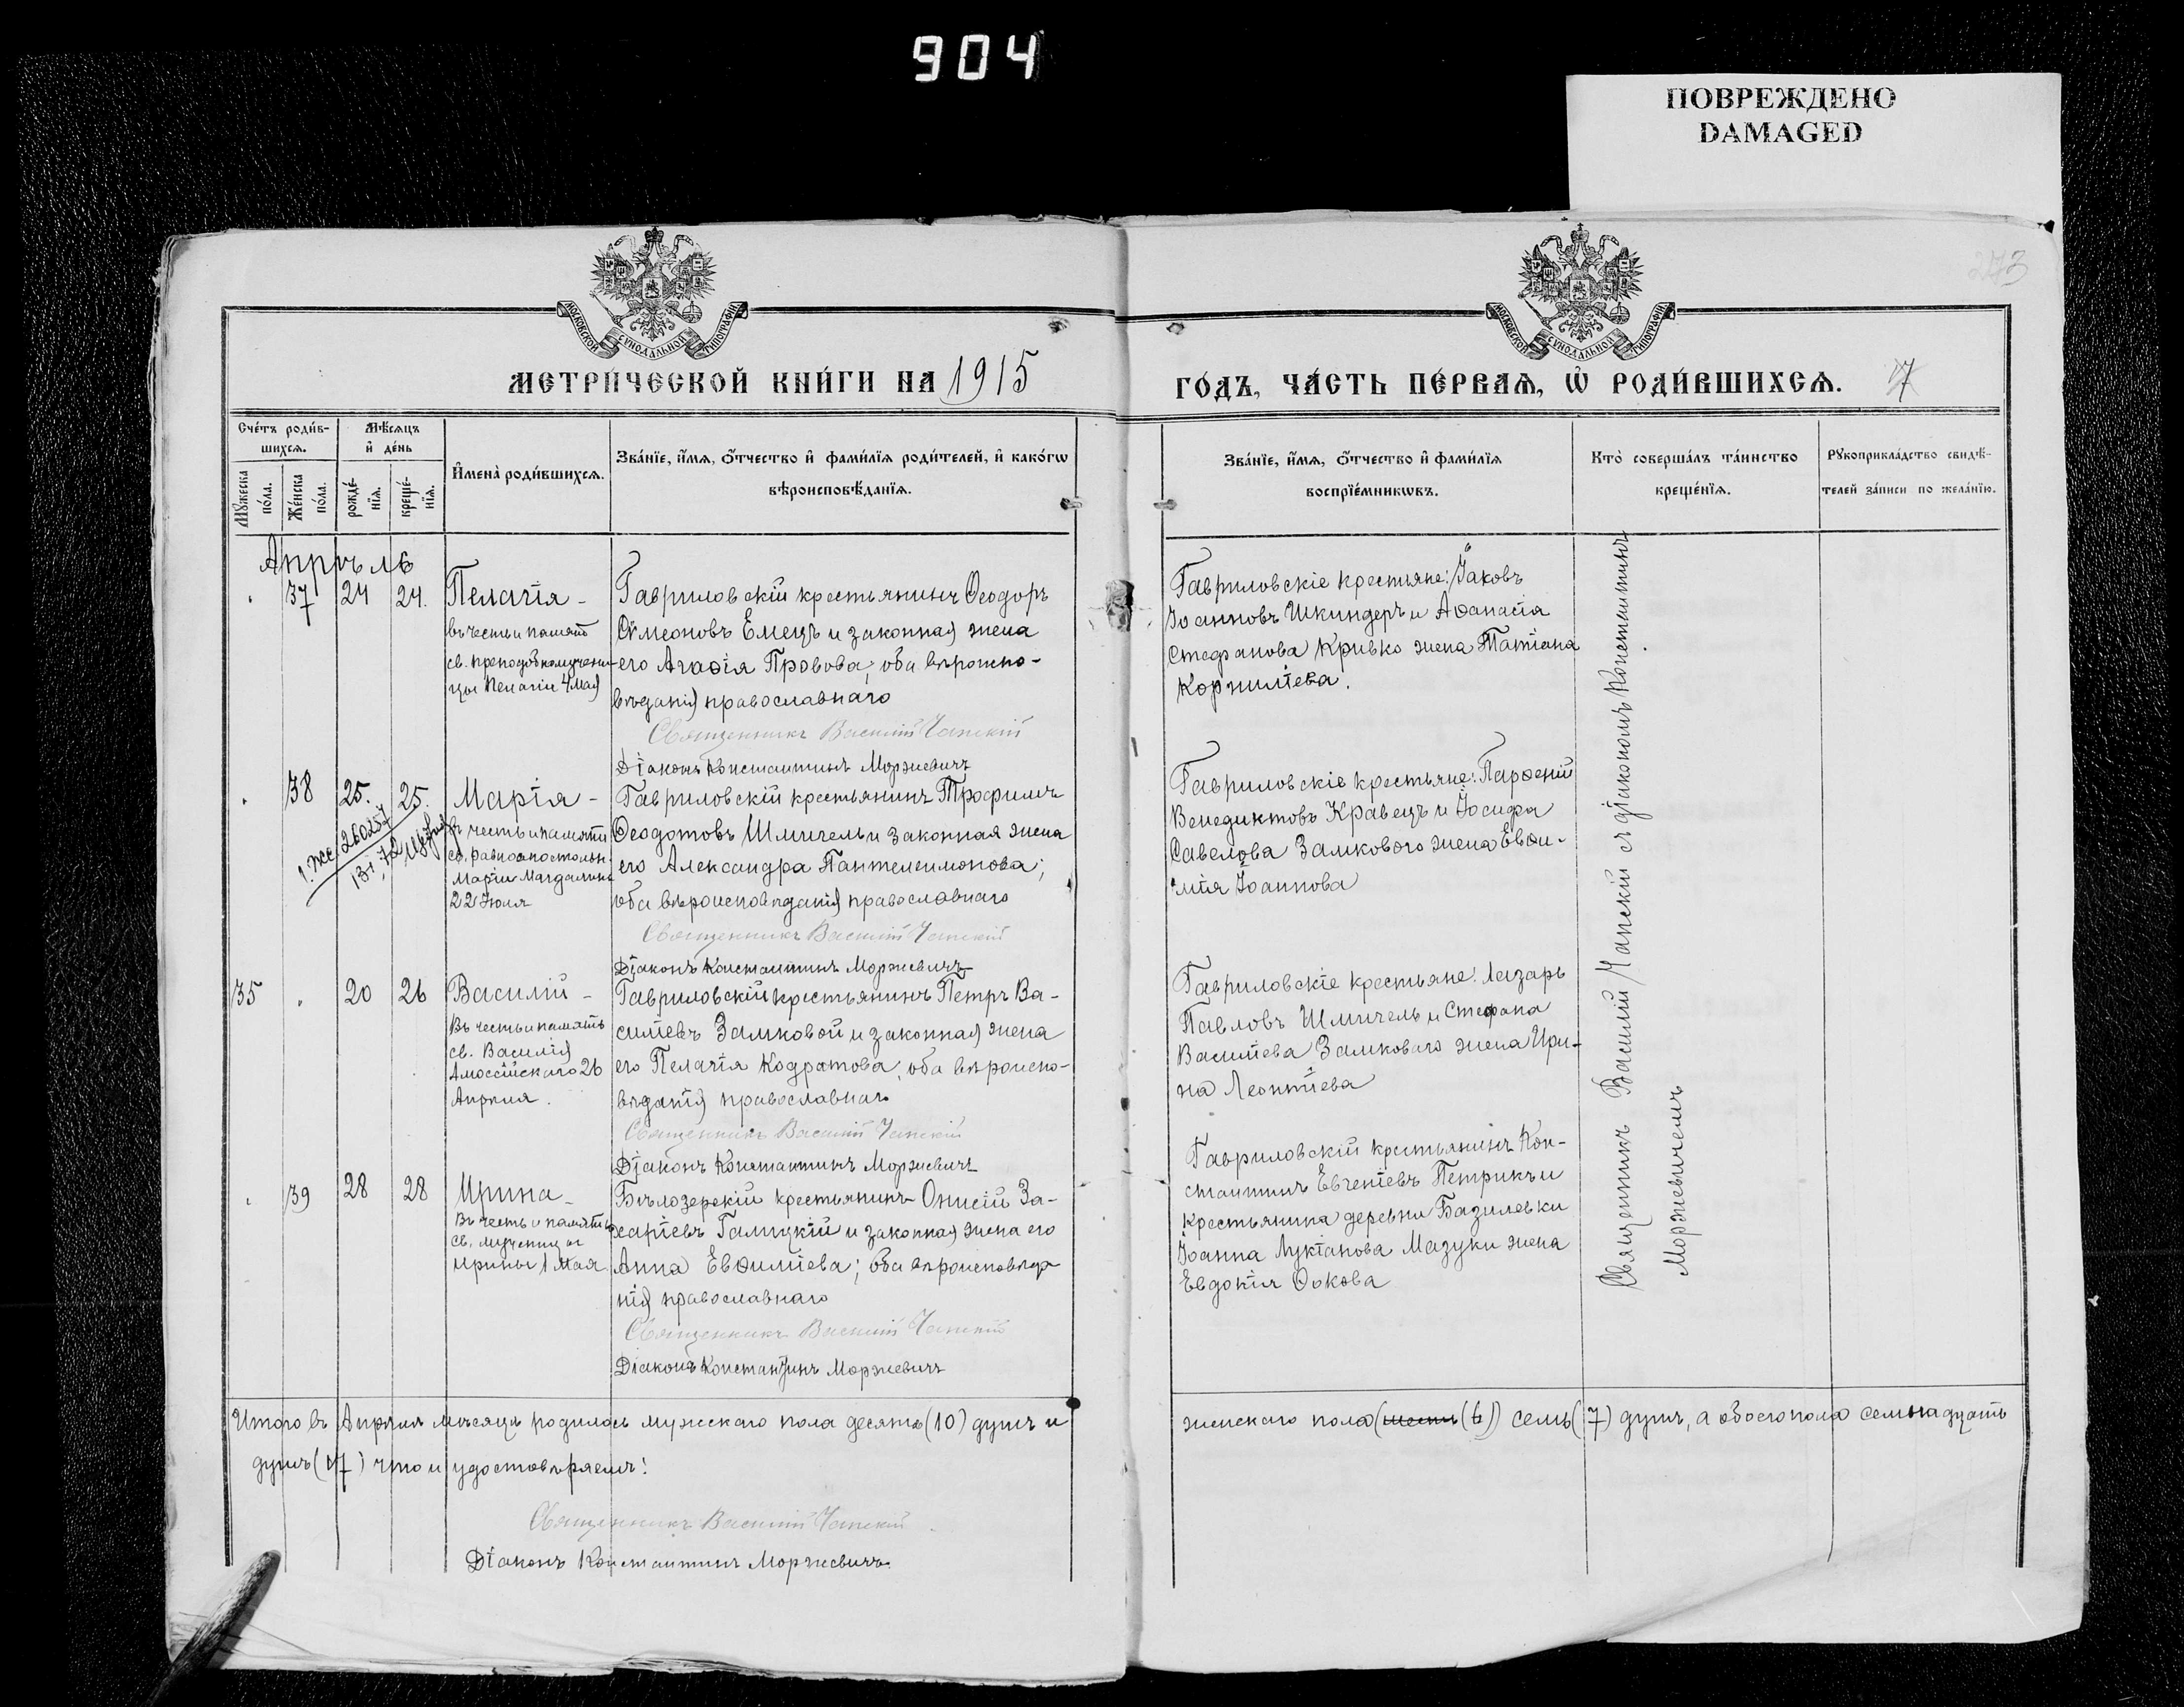 904
ПОВРЕЖДЕНО
DAMAGED
273
МОСКОВСКОЙ СУНОДАЛЬНОЙ ТИПОГРАФІИ
МОСКОВСКОЙ СУНОДАЛЬНОЙ ТИПОГРАФІИ
МЕТРИ́ЧЕСКОЙ КНИ́ГИ НА 1915
ГО́ДЪ, ЧА́СТЬ ПЕ́РВАѦ, Ѡ҆ РОДИ́ВШИХСѦ. 7
Сче́тъ роди́в-
шихсѧ.
Мѣ́сѧцъ
и҆ де́нь
Мꙋ́жеска
по́ла.
Же́нска
по́ла.
рожде́-
нїѧ.
креще́-
нїѧ.
И҆мена̀ роди́вшихсѧ.
Зва́нїе, и҆́мѧ, ѻ҆́тчество и҆ фами́лїѧ роди́телей, и҆ како́гѡ
вѣроисповѣ́данїѧ.
Зва́нїе, и҆́мѧ, ѻ҆́тчество и҆ фами́лїѧ
воспрїе́мникѡвъ.
Кто̀ соверша́лъ та́инство
креще́нїѧ.
Рꙋкоприкла́дство свидѣ́-
телей за́писи по жела́нїю.
Апрѣль
37 24 24. Пелагія -
въ честь и память
св. преподобномучени-
цы Пелагіи 4 Мая
Гавриловскій крестьянинъ Ѳеодоръ
Сѵмеоновъ Емецъ и законная жена
его Агаѳія Провова; оба вѣроиспо-
вѣданія православнаго
Священникъ Василій Чапскій
Діаконъ Константинъ Моржевичъ
Гавриловскіе крестьяне: Іаковъ
Іоанновъ Шкиндеръ и Аѳанасія
Стефанова Кривко жена Татіана
Корниліева.
38 25. 25. Марія -
въ честь и память
св. равноапостольн.
Маріи Магдалины
22 Іюля
Гавриловскій крестьянинъ Трофимъ
Ѳеодотовъ Шмигель и законная жена
его Александра Пантелеимонова;
оба вѣроисповѣданія православнаго
Священникъ Василій Чапскій
Діаконъ Константинъ Моржевичъ
Гавриловскіе крестьяне: Парѳеній
Венедиктовъ Кравецъ и Іосифа
Савелова Замкового жена Евѳи-
мія Іоаннова
35 20 26 Василій -
Въ честь и память
св. Василія
Амассійскаго 26
Апрѣля.
Гавриловскій крестьянинъ Петръ Ва-
силіевъ Замковой и законная жена
его Пелагія Кодратова; оба вѣроиспо-
вѣданія православнаго
Священникъ Василій Чапскій
Діаконъ Константинъ Моржевичъ
Гавриловскіе крестьяне: Лазарь
Павловъ Шмигель и Стефана
Василіева Замковаго жена Ири-
на Леонтіева
39 28 28 Ирина -
Въ честь и память
св. мученицы
Ирины 1 Мая.
Бѣлозерскій крестьянинъ Онисій За-
харіевъ Галицкій и законная жена его
Анна Евѳиміева; оба вѣроисповѣда
нія православнаго
Священникъ Василій Чапскій
Діаконъ Константинъ Моржевичъ
Гавриловскій крестьянинъ Кон-
стантинъ Евгеніевъ Петрикъ и
крестьянина деревни Базилевки
Іоанна Лукіанова Мазуки жена
Евдокія Ѳокова
Священникъ Василій Чапскій съ діакономъ Константиномъ
Моржевичемъ
Итого въ Апрѣлѣ мѣсяцѣ родилось мужескаго пола десять (10) душъ и
женскаго пола (шесть (6)) семь (7) душъ, а обоего пола семнадцать
душъ (17) что и удостовѣряемъ:
Священникъ Василій Чапскій.
Діаконъ Константинъ Моржевичъ.